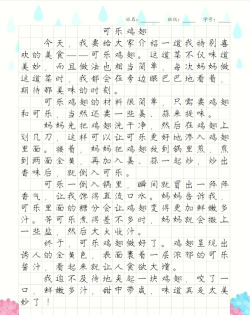 姓名: 班级: 学号:
可乐鸡翅
今天,我要给大家介绍一道我特别喜
欢的美食——可乐鸡翅。这道菜不仅味道
美妙,而且做法也相当简单。每次妈妈做
这道菜时,我都会在旁边眼巴巴地看着,
期待那美味的时刻。
可乐鸡翅的材料很简单,只需要鸡翅
和可乐,当然还要一些姜、蒜来提味。
妈妈先把鸡翅洗干净,然后在鸡翅上
划几刀,这样可以让可乐更好地渗入鸡翅
里面。接着,妈妈把鸡翅放到锅里煎,煎
到两面金黄,再加入姜、蒜一起炒,炒出
香味后,就倒入可乐。
可乐一倒入锅里,瞬间就冒出一阵阵
香气,让我馋得直流口水。妈妈告诉我,
可乐里面的糖分会让鸡翅变得更加鲜嫩多
汁。等可乐煮得差不多时,妈妈就会撒上
一些盐,然后大火收汁。
终于,可乐鸡翅做好了。鸡翅呈现出
诱人的金黄色,表面裹着一层浓郁的可乐
酱汁,看起来就让人食欲大增。
我迫不及待地夹起一块鸡翅,咬了一
口,鲜嫩多汁,甜中带咸,味道真是太美
妙了!